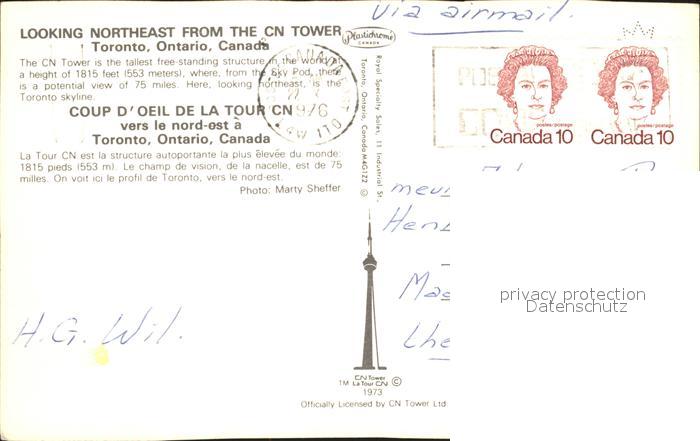 via airmail.
LOOKING NORTHEAST FROM THE CN TOWER
Toronto, Ontario, Canada
The CN Tower is the tallest free-standing structure in the world at
a height of 1815 feet (553 meters), where, from the Sky Pod, there
is a potential view of 75 miles. Here, looking northeast, is the
Toronto skyline.
COUP D'OEIL DE LA TOUR CN
vers le nord-est à
Toronto, Ontario, Canada
La Tour CN est la structure autoportante la plus élevée du monde:
1815 pieds (553 m). Le champ de vision, de la nacelle, est de 75
milles. On voit ici le profil de Toronto, vers le nord-est.
Photo: Marty Sheffer
Plastichrome
CANADA
Royal Specialty Sales, 11 Industrial St.,
Toronto, Ontario, Canada M4G1Z2 ©
1976
postes/postage
Canada 10
postes/postage
Canada 10
Hen
Ma
Lhe
H.G. Wil.
privacy protection
Datenschutz
CN Tower
TM La Tour CN ©
1973
Officially Licensed by CN Tower Ltd